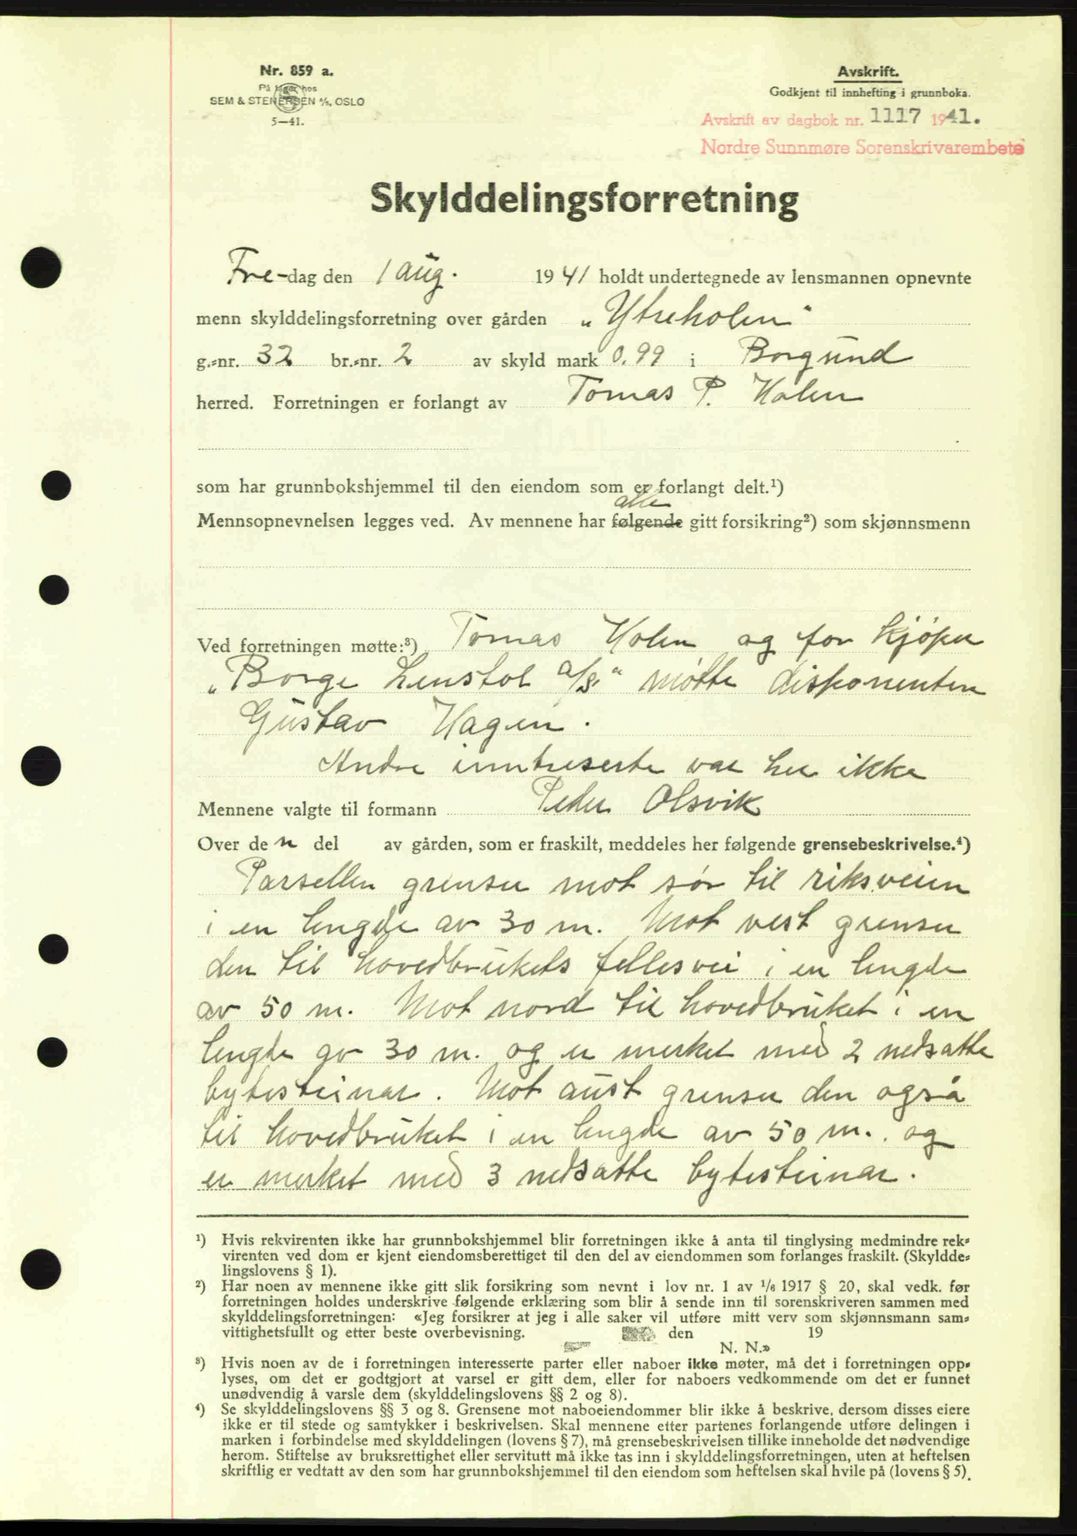 Nr. 859 a.
På lager hos
SEM & STENERSEN A/S, OSLO
5—41.
Avskrift.
Godkjent til innhefting i grunnboka.
Avskrift av dagbok nr. 1117 1941.
Nordre Sunnmøre Sorenskrivarembete
Skylddelingsforretning
Fre-dag den 1 aug. 1941 holdt undertegnede av lensmannen opnevnte
menn skylddelingsforretning over gården „Ytreholen“
g.-nr. 32 br.-nr. 2 av skyld mark 0.99 i Borgund
herred. Forretningen er forlangt av Tomas P. Holen
som har grunnbokshjemmel til den eiendom som er forlangt delt.¹)
alle
Mennsopnevnelsen legges ved. Av mennene har følgende gitt forsikring²) som skjønnsmenn
Ved forretningen møtte:³) Tomas Holen og for kjøper
„Borge Lenstol a/s“ møtte disponenten
Gustav Hagen.
Andre inntreserte var her ikke
Mennene valgte til formann Peder Olsvik
Over den del av gården, som er fraskilt, meddeles her følgende grensebeskrivelse.⁴)
Parsellen grenser mot sør til riksveien
i en lengde av 30 m. Mot vest grenser
den til hovedbrukets fellesvei i en lengde
av 50 m. Mot nord til hovedbruket i en
lengde av 30 m. og er merket med 2 nedsatte
bytesteinar. Mot aust grenser den også
til hovedbruket i en lengde av 50 m. og
er merket med 3 nedsatte bytesteinar.
¹) Hvis rekvirenten ikke har grunnbokshjemmel blir forretningen ikke å anta til tinglysing medmindre rek-
virenten ved dom er kjent eiendomsberettiget til den del av eiendommen som forlanges fraskilt. (Skyldde-
lingslovens § 1).
²) Har noen av mennene ikke gitt slik forsikring som nevnt i lov nr. 1 av 1/6 1917 § 20, skal vedk. før
forretningen holdes underskrive følgende erklæring som blir å sende inn til sorenskriveren sammen med
skylddelingsforretningen: «Jeg forsikrer at jeg i alle saker vil utføre mitt verv som skjønnsmann sam-
vittighetsfullt og etter beste overbevisning. den 19
N. N.»
³) Hvis noen av de i forretningen interesserte parter eller naboer ikke møter, må det i forretningen opp-
lyses, om det er godtgjort at varsel er gitt dem, eller for naboers vedkommende om det er funnet
unødvendig å varsle dem (skylddelingslovens §§ 2 og 8).
⁴) Se skylddelingslovens §§ 3 og 8. Grensene mot naboeiendommer blir ikke å beskrive, dersom disses eiere
ikke er til stede og samtykker i beskrivelsen. Skal mennene etter partenes forlangende utføre delingen i
marken i forbindelse med skylddelingen (lovens § 7), må grensebeskrivelsen tillike inneholde det nødvendige
herom. Stiftelse av bruksrettighet eller servitutt må ikke tas inn i skylddelingsforretningen, uten at heftelsen
skriftlig er vedtatt av den som har grunnbokshjemmel til den eiendom som heftelsen skal hvile på (lovens § 5).